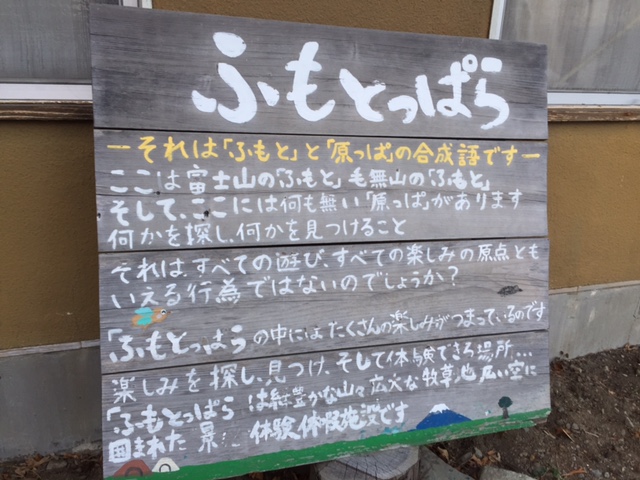 ふもとっぱら
ーそれは「ふもと」と「原っぱ」の合成語ですー
ここは富士山の「ふもと」毛無山の「ふもと」
そして、ここには何も無い「原っぱ」があります
何かを探し、何かを見つけること
それは、すべての遊び、すべての楽しみの原点とも
いえる行為ではないのでしょうか?
「ふもとっぱらの中には、たくさんの楽しみがつまっているのです
楽しみを探し、見つけ、そして体験できる場所…
「ふもとっぱらは緑豊かな山々広大な牧草地広い空に
囲まれた 体験、休暇施設です